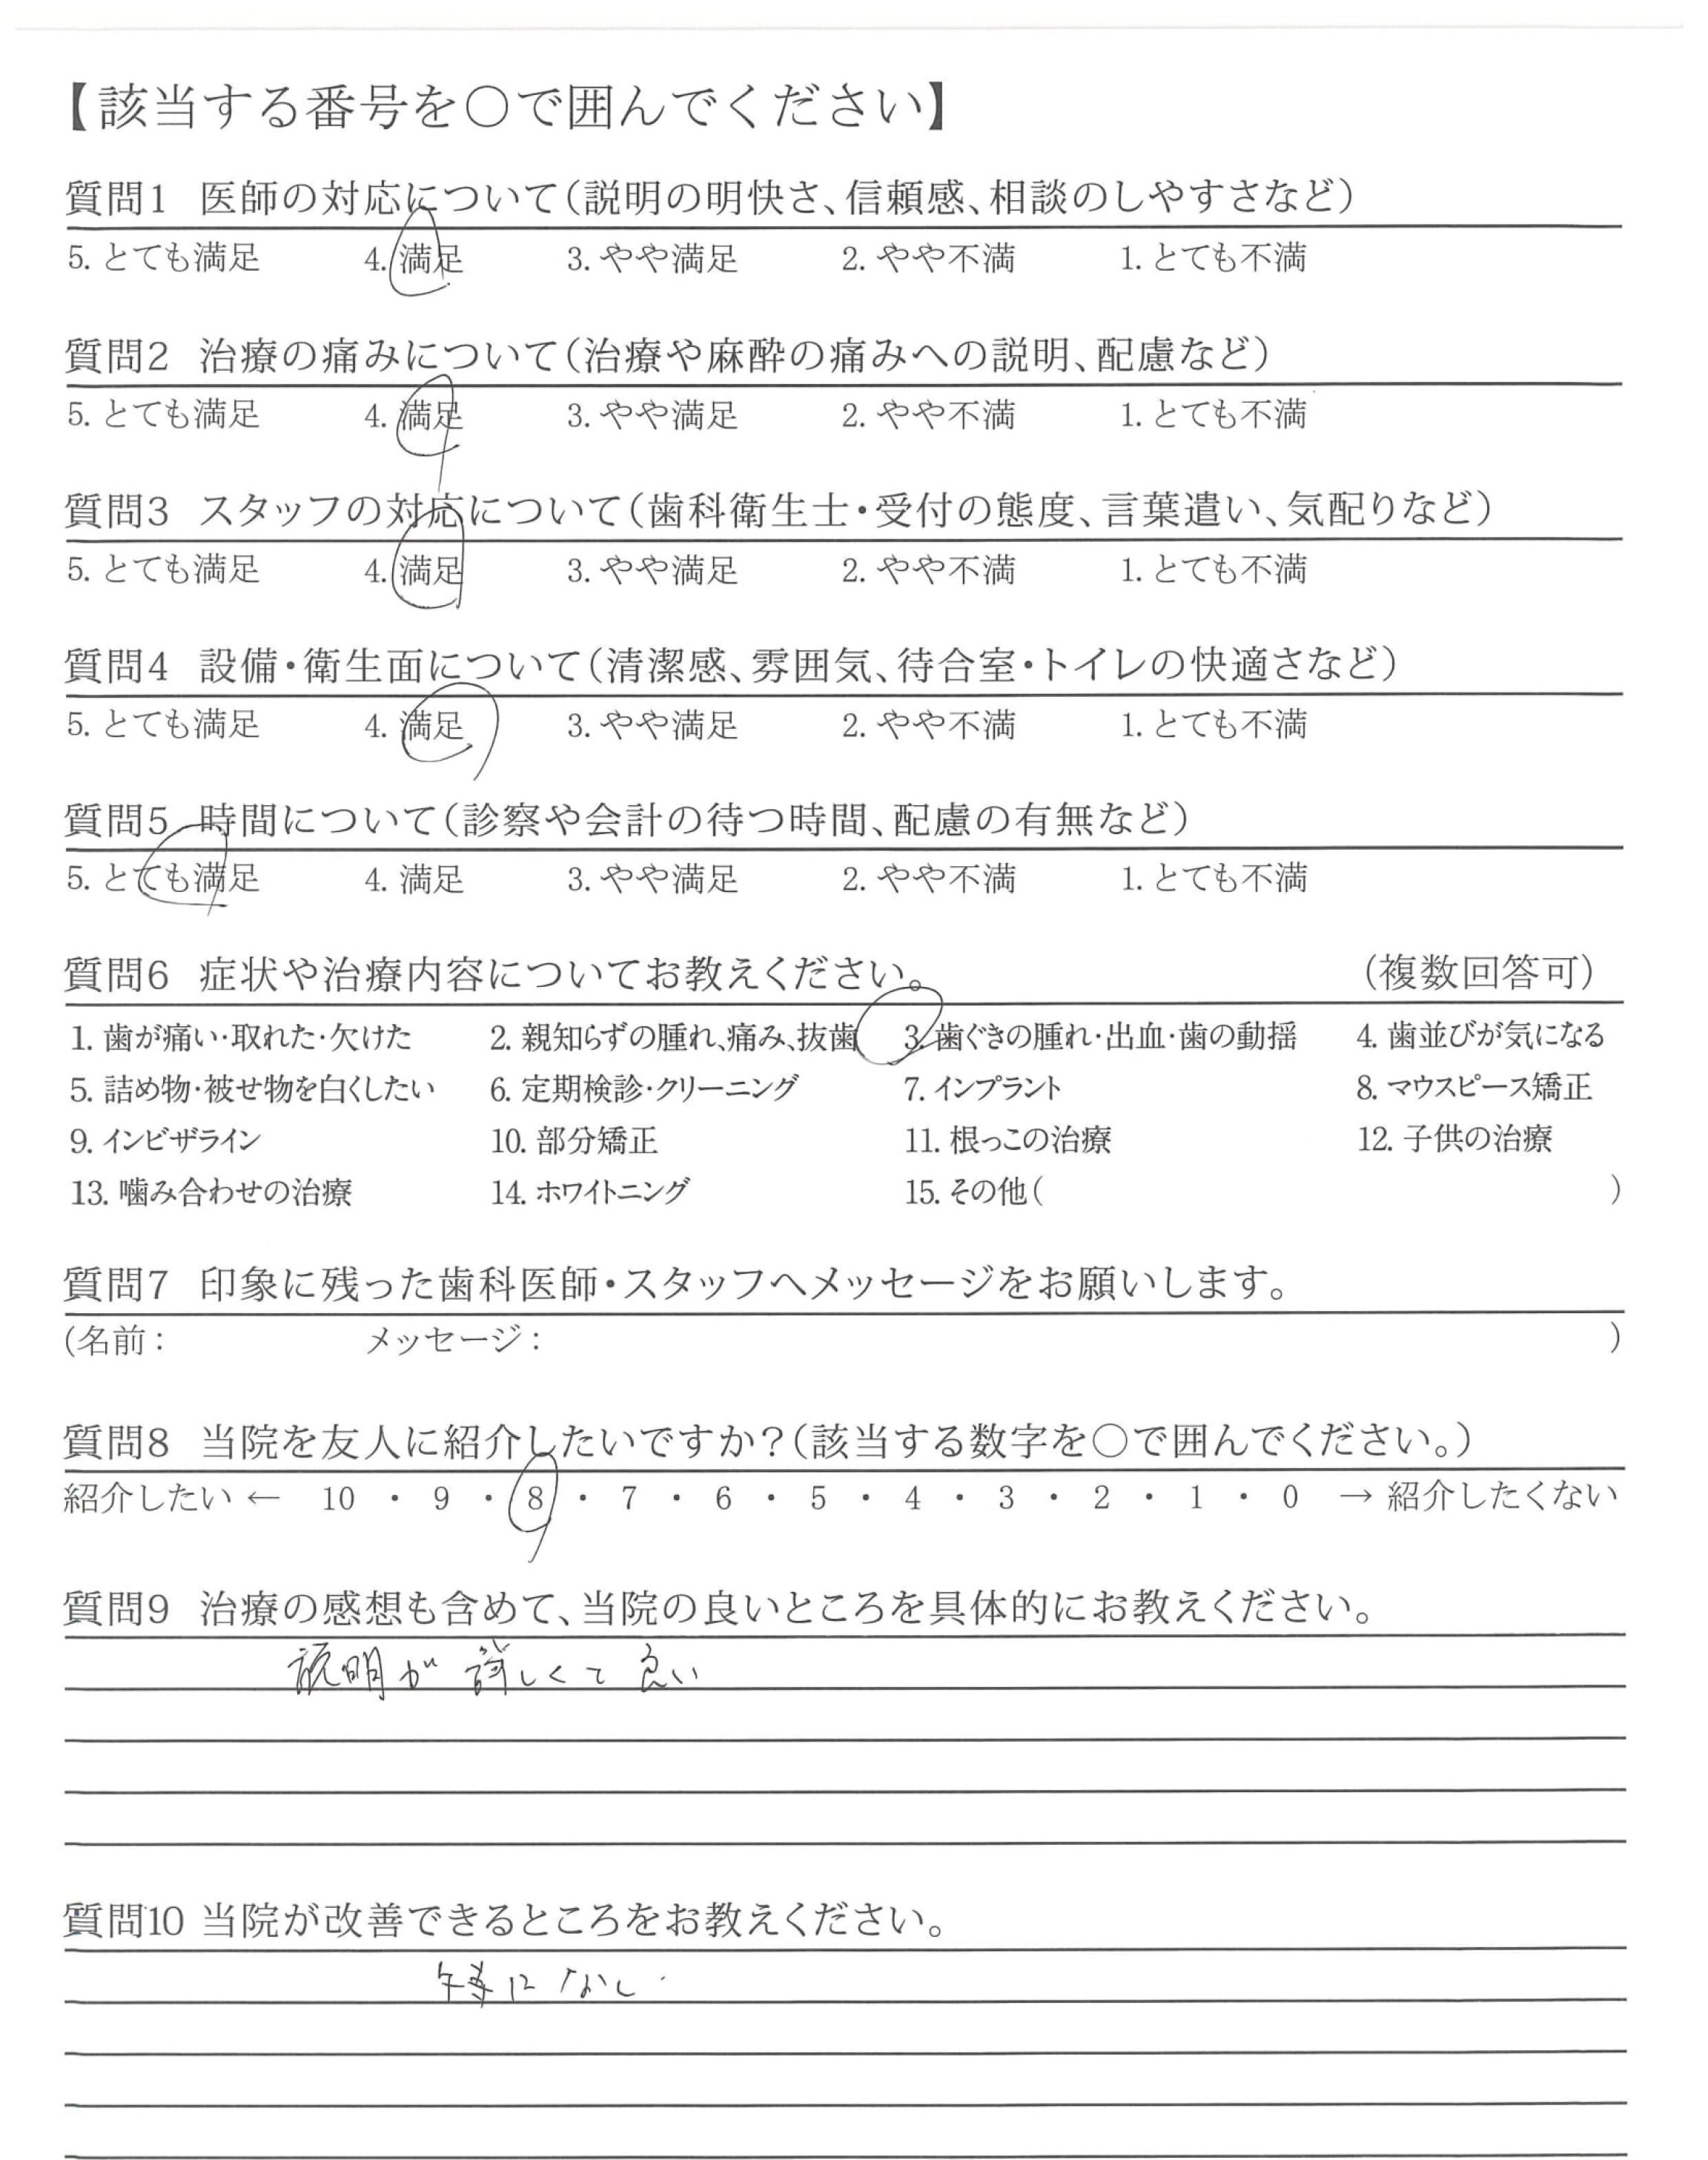 【該当する番号を○で囲んでください】
質問1 医師の対応について(説明の明快さ、信頼感、相談のしやすさなど)
5. とても満足 4. 満足 3. やや満足 2. やや不満 1. とても不満
質問2 治療の痛みについて(治療や麻酔の痛みへの説明、配慮など)
5. とても満足 4. 満足 3. やや満足 2. やや不満 1. とても不満
質問3 スタッフの対応について(歯科衛生士・受付の態度、言葉遣い、気配りなど)
5. とても満足 4. 満足 3. やや満足 2. やや不満 1. とても不満
質問4 設備・衛生面について(清潔感、雰囲気、待合室・トイレの快適さなど)
5. とても満足 4. 満足 3. やや満足 2. やや不満 1. とても不満
質問5 時間について(診察や会計の待つ時間、配慮の有無など)
5. とても満足 4. 満足 3. やや満足 2. やや不満 1. とても不満
質問6 症状や治療内容についてお教えください。 (複数回答可)
1. 歯が痛い・取れた・欠けた 2. 親知らずの腫れ、痛み、抜歯 3. 歯ぐきの腫れ・出血・歯の動揺 4. 歯並びが気になる
5. 詰め物・被せ物を白くしたい 6. 定期検診・クリーニング 7. インプラント 8. マウスピース矯正
9. インビザライン 10. 部分矯正 11. 根っこの治療 12. 子供の治療
13. 噛み合わせの治療 14. ホワイトニング 15. その他( )
質問7 印象に残った歯科医師・スタッフへメッセージをお願いします。
(名前: メッセージ: )
質問8 当院を友人に紹介したいですか?(該当する数字を○で囲んでください。)
紹介したい ← 10 ・ 9 ・ 8 ・ 7 ・ 6 ・ 5 ・ 4 ・ 3 ・ 2 ・ 1 ・ 0 → 紹介したくない
質問9 治療の感想も含めて、当院の良いところを具体的にお教えください。
説明が詳しくて良い
質問10 当院が改善できるところをお教えください。
特になし.